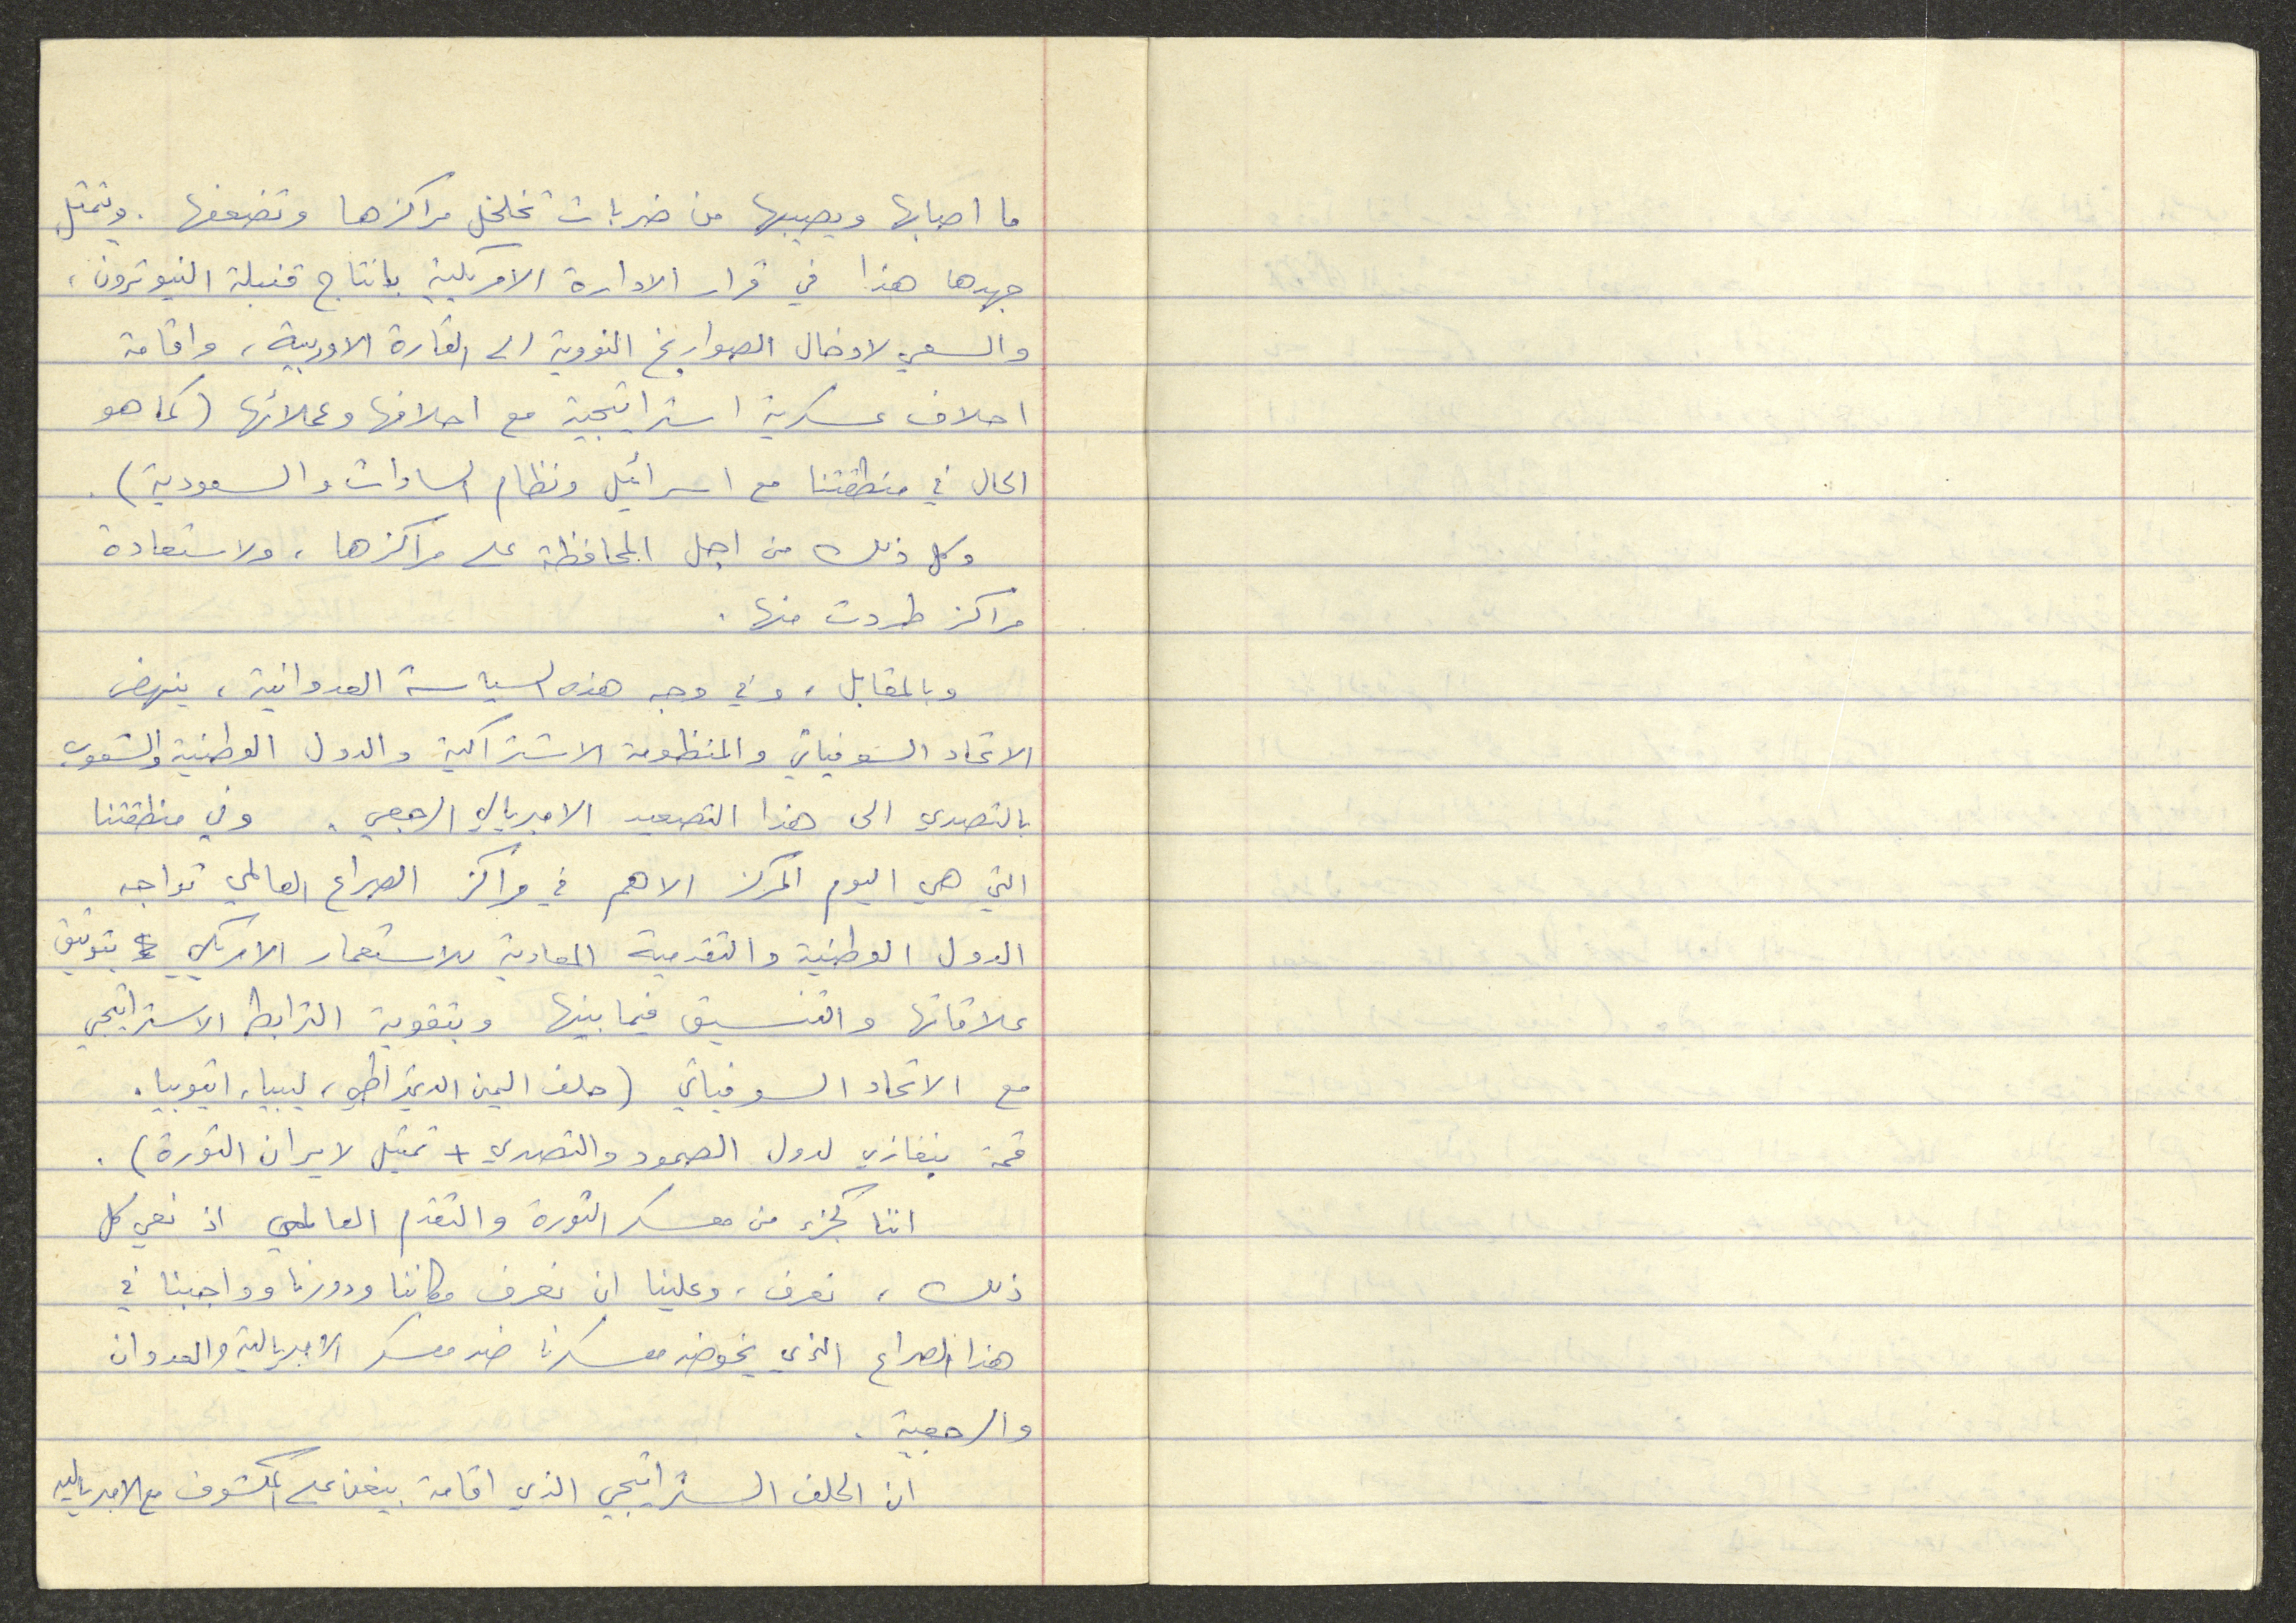 ما اصابها ويصيبها من ضربات تخلخل مراكزها وتضعفها . وتمثل
جهدها هذا في قرار الادارة الامريكية بانتاج قنبلة النيوترون ،
والسعي لادخال الصواريخ النووية الى القارة الاوربية ، واقامة
احلاف عسكرية استراتيجية مع احلافها وعملائها ( كما هو
الحال في منطقتنا مع اسرائيل ونظام السادات والسعودية ) .
وكل ذلك من اجل المحافظة على مراكزها ، ولاستعادة
مراكز طردت منها .
وبالمقابل ، وفي وجه هذه السياسة العدوانية ، ينهض
الاتحاد السوفياتي والمنظومة الاشتراكية والدول الوطنية والشعوب
بالتصدي الى هذا التصعيد الامبريالي الرجعي . وفي منطقتنا
التي هي اليوم المركز الاهم في مراكز الصراع العالمي تواجه
الدول الوطنية والتقدمية المعادية للاستعمار الامريكي بتوثيق
علاقاتها والتنسيق فيما بينها وبتقوية الترابط الاستراتيجي
مع الاتحاد السوفياتي ( حلف اليمن الديمقراطي ، ليبيا ، اثيوبيا .
قمة بنغازي لدول الصمود والتصدي + تمثيل لايران الثورة ) .
اننا كجزء من معسكر الثورة والتقدم العالمي اذ نعي كل
ذلك ، نعرف ، وعلينا ان نعرف مكاننا ودورنا وواجبنا في
هذا الصراع الذي يخوضه معسكرنا ضد معسكر الامبريالية والعدوان
والرجعية .
ان الحلف الستراتيجي الذي اقامة بيغن على المكشوف مع الامبريالية